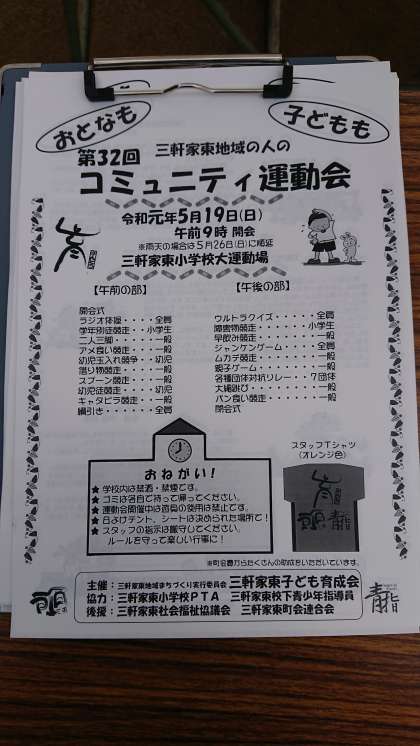 おとなも
子どもも
第32回 三軒家東地域の人の
コミュニティ運動会
令和元年5月19日(日)
午前9時 開会
※雨天の場合は5月26日(日)に順延
三軒家東小学校大運動場
【午前の部】
開会式
ラジオ体操・・・・全員
学年別徒競走・・小学生
二人三脚・・・・・一般
アメ食い競走・・・一般
幼児玉入れ競争・・幼児
借り物競走・・・・一般
スプーン競走・・・一般
幼児徒競走・・・・幼児
キャタピラ競走・・一般
綱引き・・・・・・全員
【午後の部】
ウルトラクイズ・・・・・・全員
障害物競走・・・・・・・小学生
早飲み競走・・・・・・・・一般
ジャンケンゲーム・・・・・全員
ムカデ競走・・・・・・・・一般
親子ゲーム・・・・・・・・一般
各種団体対抗リレー・・7団体
大縄跳び・・・・・・・・・一般
パン食い競走・・・・・・・一般
閉会式
おねがい!
★ 学校内は禁酒・禁煙です。
★ ゴミは各自で持って帰ってください。
★ 運動会開催中は遊具の使用は禁止です。
★ 日よけテント、シートは決められた場所で!
★ スタッフの指示は厳守してください。
ルールを守って楽しい行事に!
スタッフTシャツ
(オレンジ色)
※町会費からたくさんの助成をいただいています。
主催:三軒家東地域まちづくり実行委員会 三軒家東子ども育成会
協力:三軒家東小学校PTA 三軒家東校下青少年指導員
後援:三軒家東社会福祉協議会 三軒家東町会連合会
青指